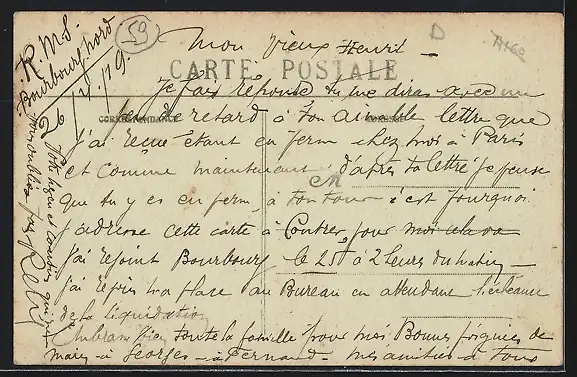 R.M.S.
Bourbourg Nord
2/4/19.
59
D
A160
Mon vieux Henri -
CARTE POSTALE
Je fais réponse tu me diras avec un
peu de retard à ton aimable lettre que
CORRESPONDANCE
ADRESSE
j'ai reçue étant en perm chez moi à Paris
et comme maintenant d'après ta lettre je pense
que tu y es en perm, à ton tour c'est pourquoi
j'adresse cette carte à Contres, pour moi cela va
j'ai rejoint Bourbourg le 25 à 2 heures du matin,
j'ai repris ma place au Bureau en attendant
de la liquidation
Embrasse bien toute la famille pour moi Bonnes poignées de
mains à Georges - à Fernand - mes amitiés à tous